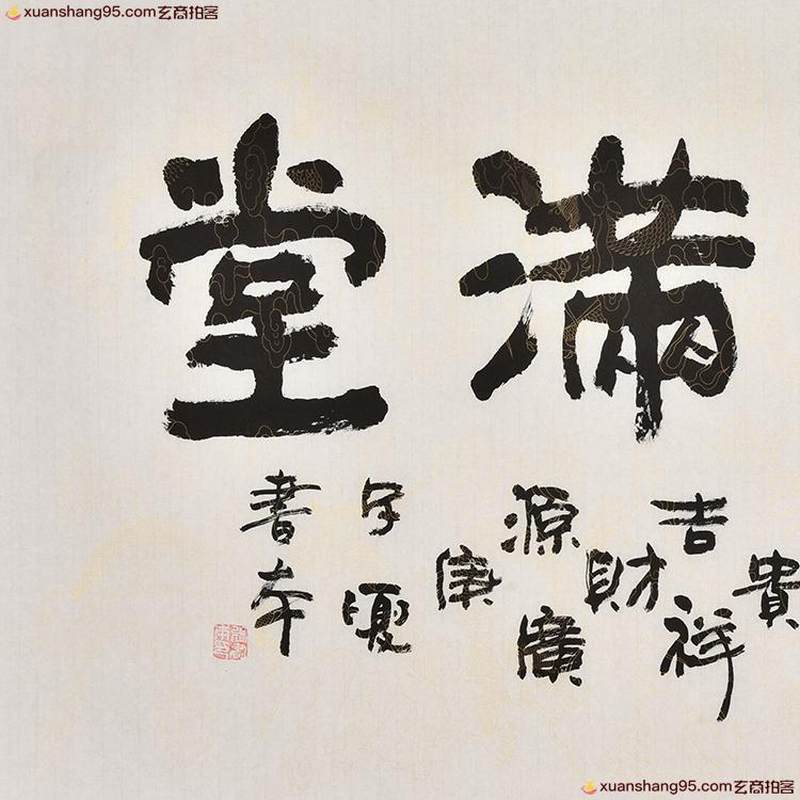 xuanshang95.com玄商拍客
滿堂
貴
吉祥
財
源廣
庚
子夏
書本
xuanshang95.com玄商拍客